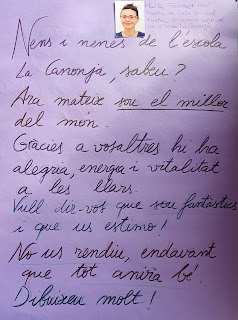 Nens i nenes de l'escola
La Canonja, sabeu?
Ara mateix sou el millor
del món.
Gràcies a vosaltres hi ha
alegria, energia i vitalitat
a les llars.
Vull dir-vos que sou fantàstics
i que us estimo!
No us rendiu, endavant
que tot anirà bé.
Dibuixeu molt!